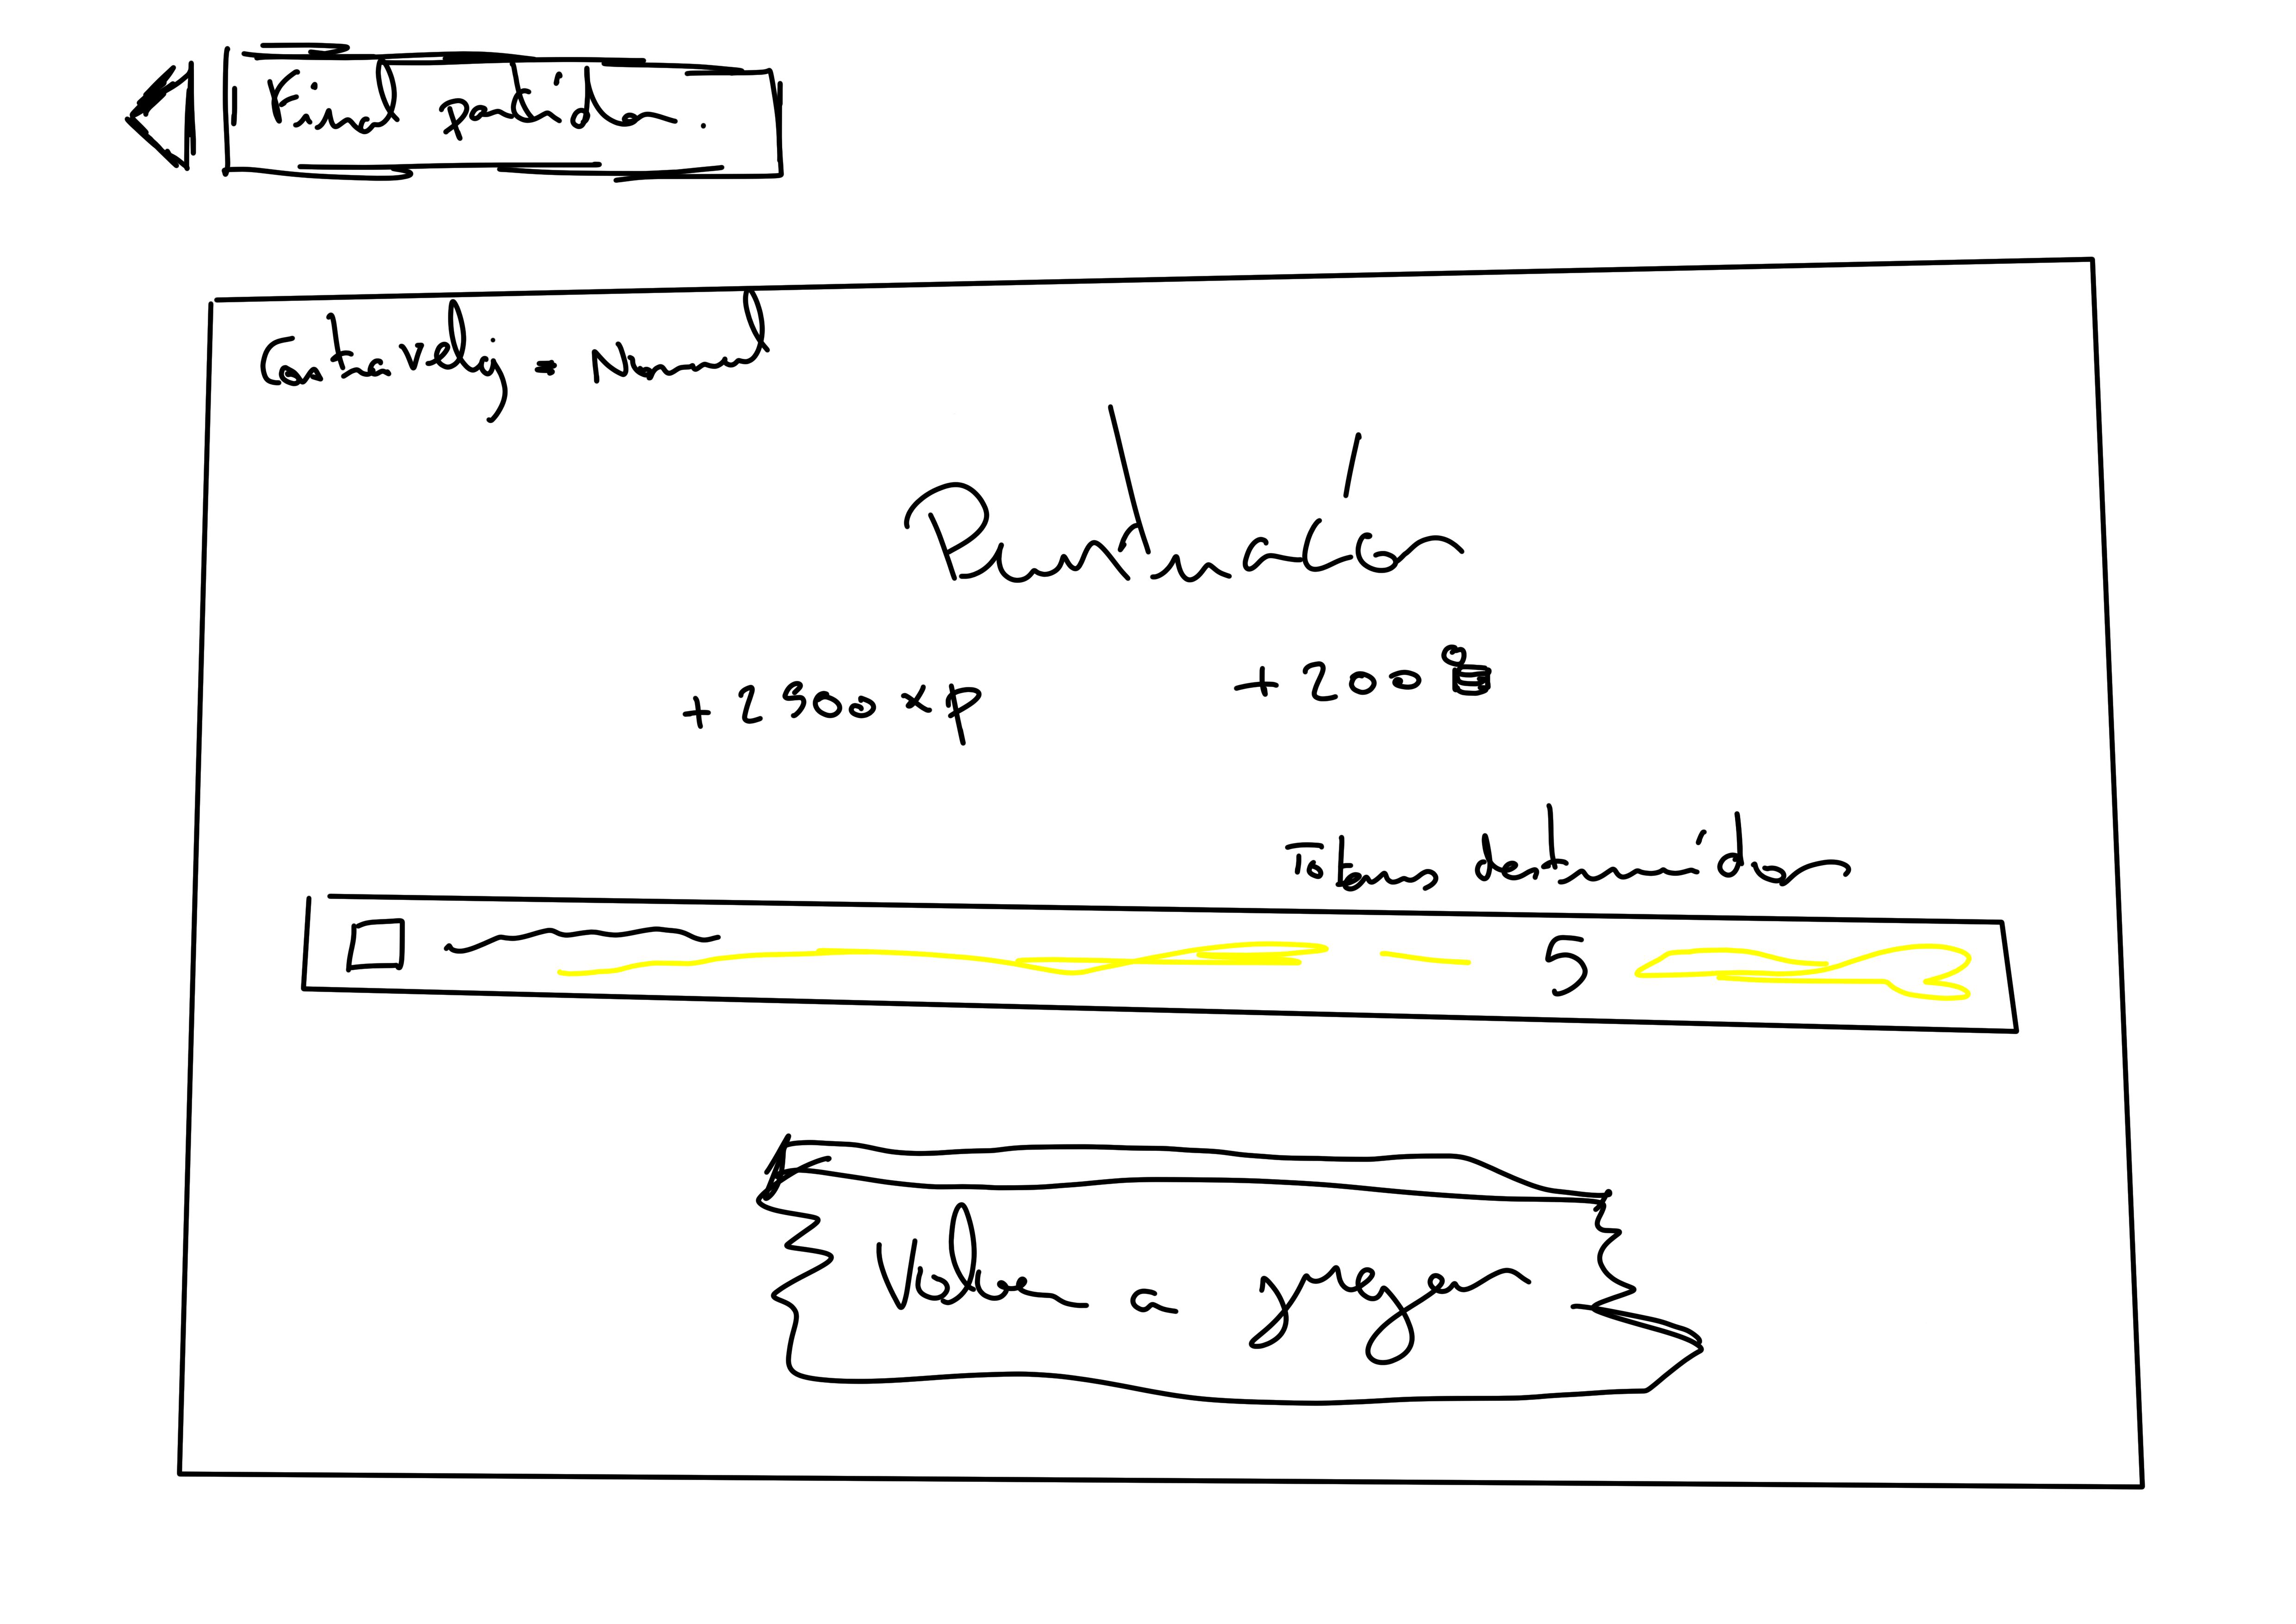 Final partida.
Contrareloj = Normal
Puntuación
+ 2300 xp + 200
Totems destruidos
5
Volver a jugar